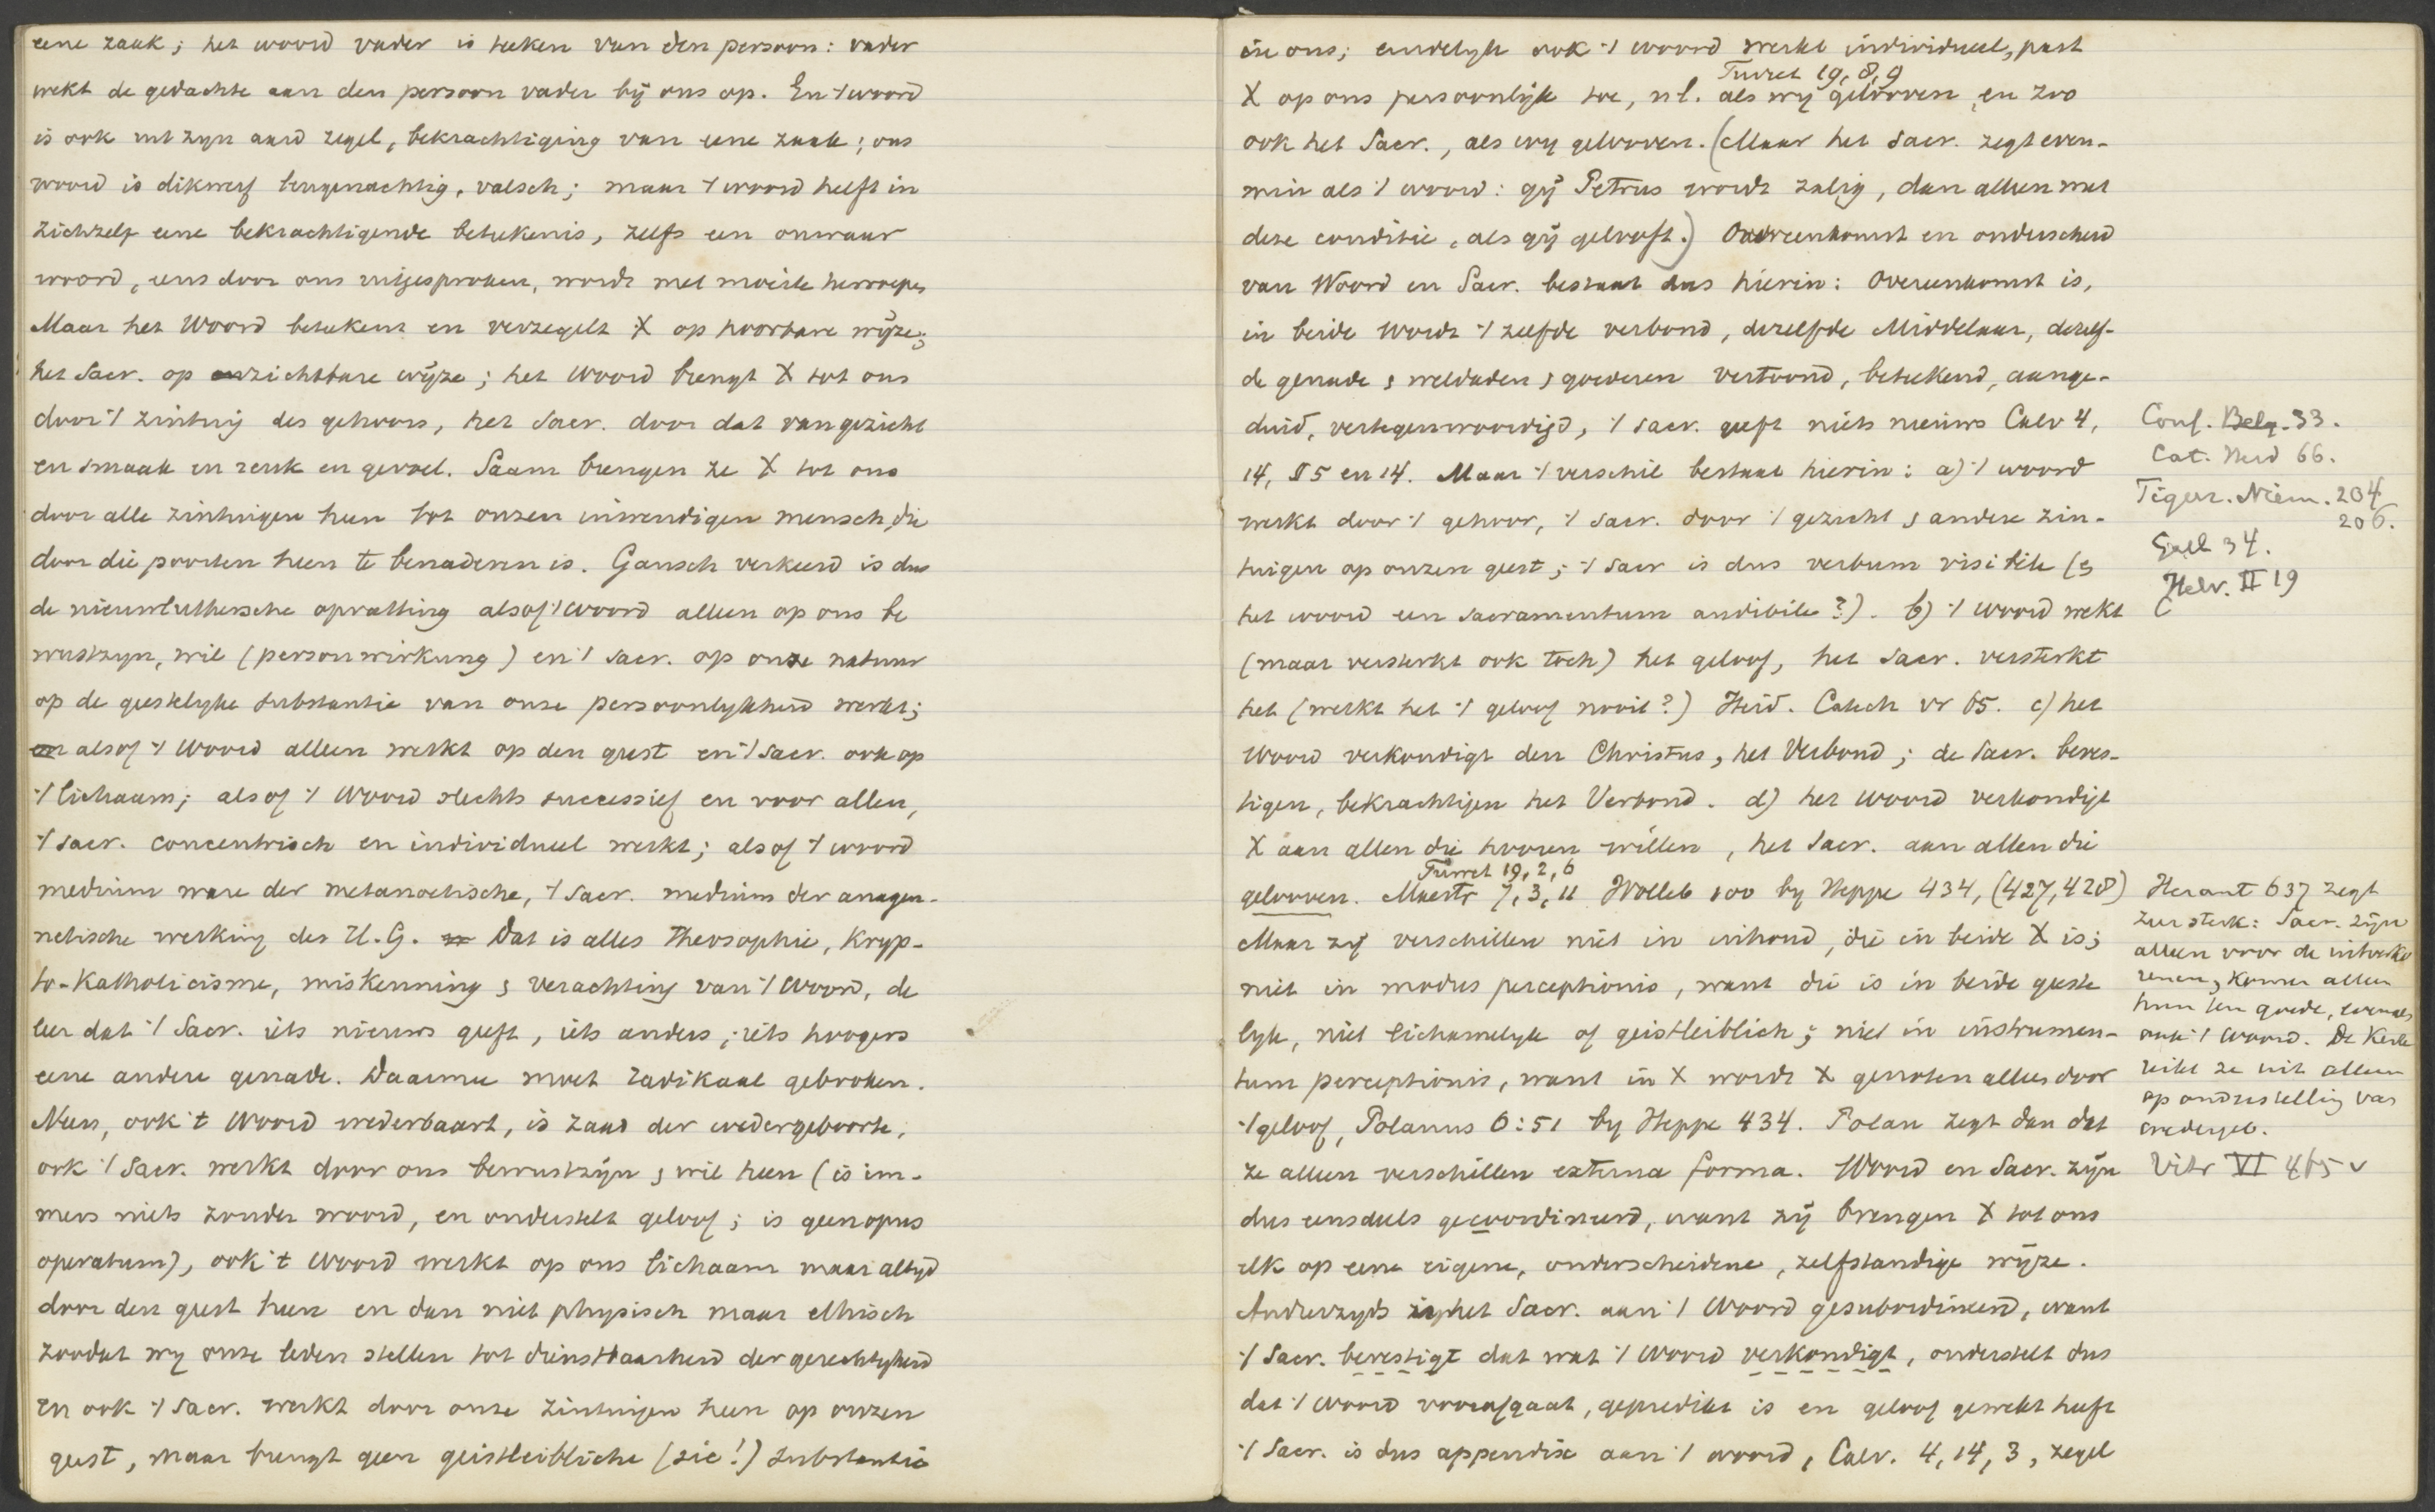 eene zaak; het woord vader is teeken van den persoon: vader
wekt de gedachte aan den persoon vader bij ons op. En 't woord
is ook uit zijn aard zegel, bekrachtiging van eene zaak; ons
woord is dikwerf leugenachtig, valsch; maar 't woord heeft in
zichzelf eene bekrachtigende beteekenis, zelfs een onwaar
woord, eens door ons uitgesproken, wordt met moeite herroepen
Maar het Woord beteekent en verzegelt X op hoorbare wijze;
het Sacr. op zichtbare wijze; het Woord brengt X tot ons
door 't zintuig des gehoors, het Sacr. door dat van gezicht
en smaak en reuk en gevoel. Saam brengen ze X tot ons
door alle zintuigen heen tot onzen inwendigen mensch, die
door die poorten heen te benaderen is. Gansch verkeerd is dus
de nieuwluthersche opvatting alsof 't Woord alleen op ons be
wustzijn, wil (personwirkung) en 't Sacr. op onze natuur
op de geestelijke substantie van onze persoonlijkheid werkt;
en alsof 't Woord alleen werkt op den geest en 't Sacr. ook op
't lichaam; alsof 't Woord slechts successief en voor allen,
't Sacr. concentrisch en individueel werkt; alsof 't woord
medium ware der metanoetische, 't Sacr. medium der anagen-
netische werking des H. G. Dat is alles Theosophie, Kryp-
to-Katholicisme, miskenning & verachting van 't Woord, de
leer dat 't Sacr. iets nieuws geeft, iets anders, iets hoogers
eene andere genade. Daarmee moet radikaal gebroken.
Neen, ook 't Woord wederbaart, is zaad der wedergeboorte,
ook 't Sacr. werkt door ons bewustzijn & wil heen (is im-
mers niets zonder woord, en onderstelt geloof; is geen opus
operatum), ook 't Woord werkt op ons lichaam maar altijd
door den geest heen en dan niet physisch maar ethisch
zoodat wij onze leden stellen tot dienstbaarheid der gerechtigheid
en ook 't Sacr. werkt door onze zintuigen heen op onzen
geest, maar brengt geen geistleibliche (sic!) substantie
in ons; eindelijk ook 't woord werkt individueel, past
Turret 19, 8, 9
X op ons persoonlijk toe, nl. als wij gelooven, en zoo
ook het Sacr., als wij gelooven. (Maar het Sacr. zegt even-
min als 't woord: gij Petrus wordt zalig, dan alleen met
deze conditie, als gij gelooft.) Overeenkomst en onderscheid
van Woord en Sacr. bestaat dus hierin: Overeenkomst is,
in beide wordt 't zelfde verbond, dezelfde Middelaar, dezelf-
de genade & weldaden & goederen vertoond, beteekend, aange-
duid, vertegenwoordigd, 't Sacr. geeft niets nieuws Calv 4,
14, § 5 en 14. Maar 't verschil bestaat hierin: a) 't woord
werkt door 't gehoor, 't Sacr. door 't gezicht & andere zin-
tuigen op onzen geest; 't Sacr is dus verbum visibile (&
het woord een sacramentum audibile?). b) 't Woord wekt
(maar versterkt ook toch) het geloof, het Sacr. versterkt
het (werkt het 't geloof nooit?) Heid. Catech vr 65. c) het
Woord verkondigt den Christus, het Verbond; de Sacr. beves-
tigen, bekrachtigen het Verbond. d) het woord verkondigt
X aan allen die hooren willen, het Sacr. aan allen die
Turret 19, 2, 6
gelooven. Maestr 7, 3, 11 Wolleb 100 bij Heppe 434, (427, 428)
Maar zij verschillen niet in inhoud, die in beide X is;
niet in modus perceptionis, want die is in beide geeste
lijk, niet lichamelijk of geistleiblich; niet in instrumen-
tum perceptionis, want in X wordt X genoten alleen door
't geloof, Polanus 6:51 bij Heppe 434. Polan zegt dan dat
ze alleen verschillen externa forma. Woord en Sacr. zijn
dus eensdeels gecoordineerd, want zij brengen X tot ons
elk op eene eigene, onderscheidene, zelfstandige wijze.
Anderzijds is het Sacr. aan 't Woord gesubordineerd, want
't Sacr. bevestigt dat wat 't Woord verkondigt, onderstelt dus
dat 't Woord voorafgaat, gepredikt is en geloof gewekt heeft
't Sacr. is dus appendix aan 't woord, Calv. 4, 14, 3, zegel
Conf. Belg. 33.
Cat. Heid 66.
Tigur. Niem. 204
206.
Gall 34.
Helv. II 19
Herant 637 zegt
zeer sterk: Sacr. zijn
alleen voor de uitverko
renen, komen alleen
hun ten goede, evenals
ook 't Woord. De Kerk
reikt ze uit alleen
op onderstelling van
wedergeb.
Vitr VI 465 v